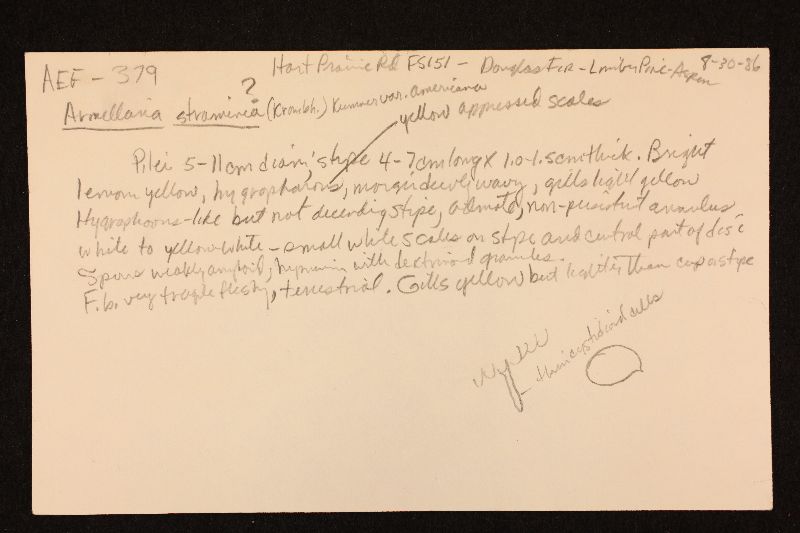 AEE - 379
Hart Prairie Rd FS151 - Douglas Fir - Limber Pine - Aspen
8-30-86
?
Armellaria straminia (Krombh.) Kummer var. americana
yellow appressed scales
Pilei 5-11cm diam; stipe 4-7cm long X 1.0-1.5cm thick. Bright
lemon yellow, hygrophanous, margin wavy, gills light yellow
Hygrophorus-like but not decending stipe, adnate, non-persistent annulus
white to yellow-white - small white scales on stipe and central part of disc
Spores weakly amyloid, hymenium with dextrinoid granules.
F.b. very fragile fleshy, terrestrial. Gills yellow but lighter than cap or stipe
cells